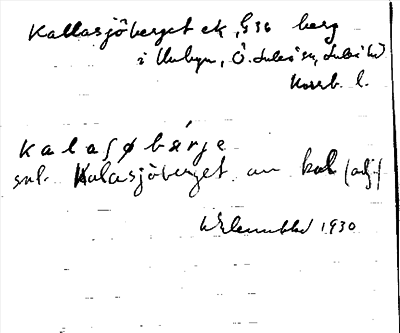 Kallasjöberget ek, G36 berg
i Unbyn, Ö. Luleå sn, Luleå hd
Norrb. l.
kalasøbærje
snl. Kalasjöberget av kal (adj)
1930